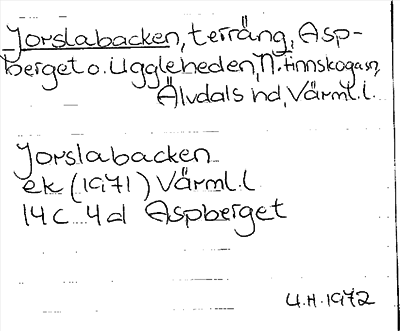 Jorslabacken, terräng, Asp-
berget o. Uggleheden, N. Finnskoga sn,
Älvdals hd, Värml. l.
Jorslabacken
ek (1971) Värml. l
14 C 4 d Aspberget
U.H. 1972